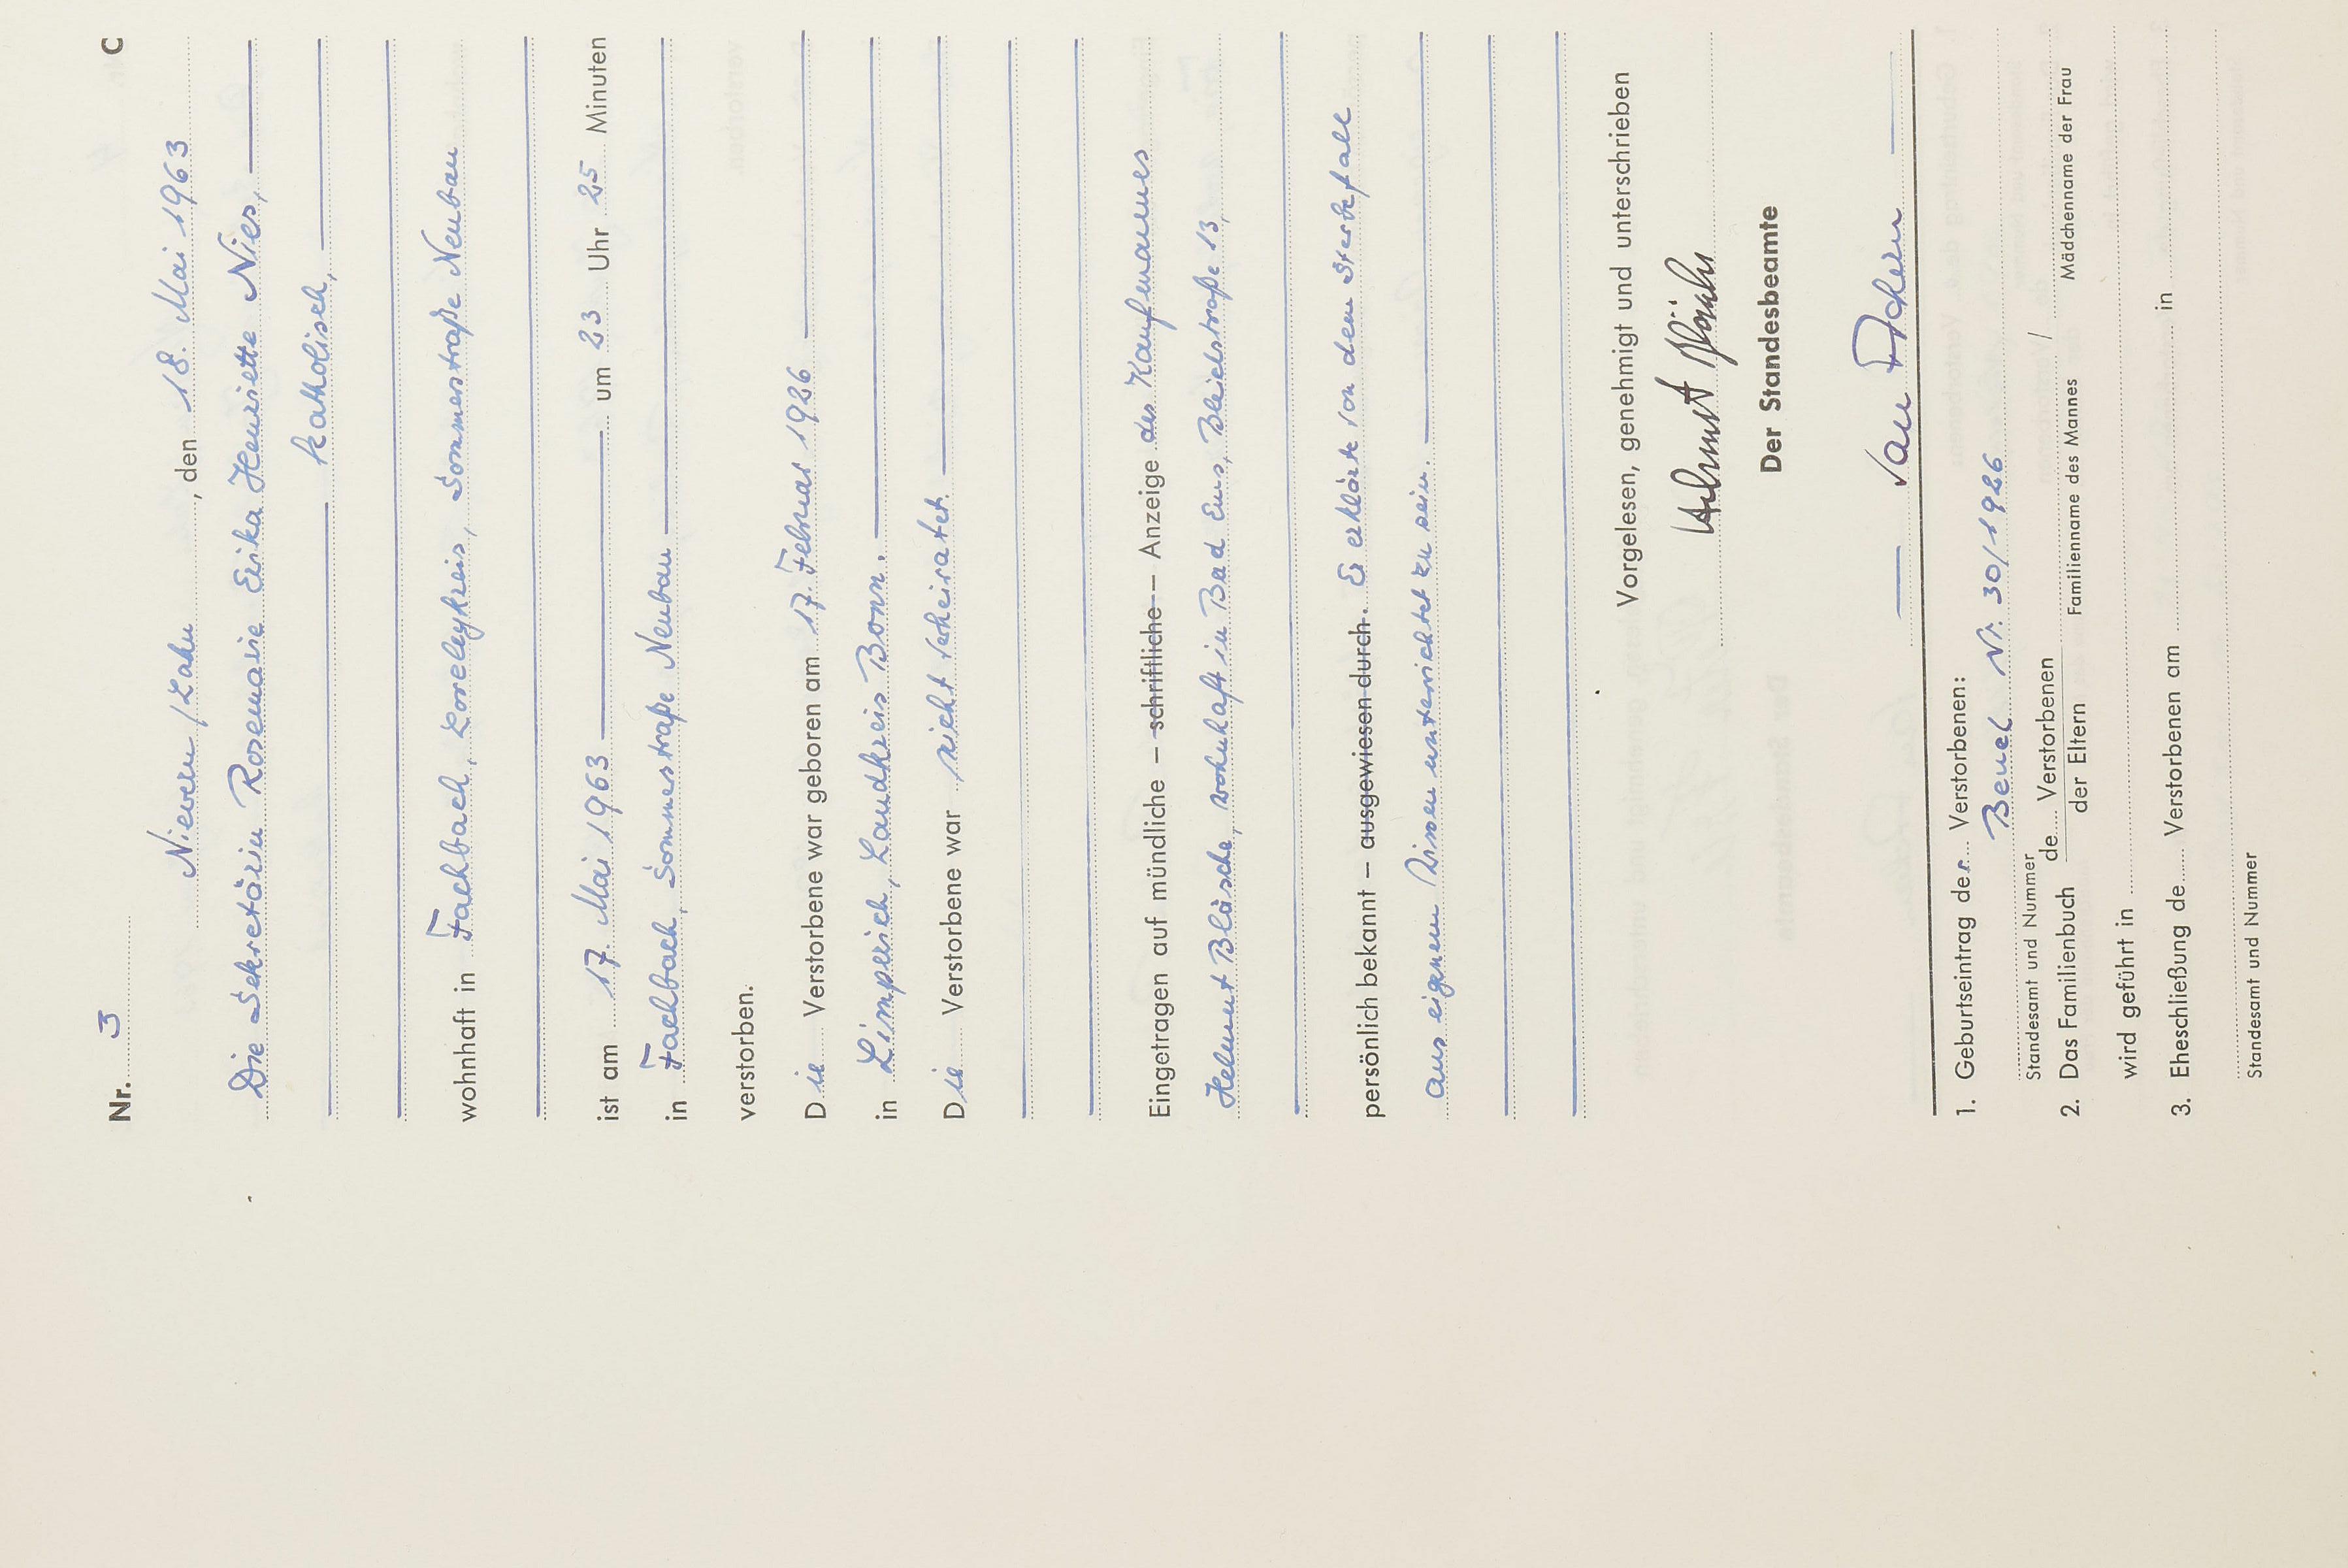 Nr. 3 C
Nievern/Lahn, den 18. Mai 1963
Die Sekretärin Rosemarie Erika Henriette Nies,
katholisch,
wohnhaft in Fachbach, Loreleykreis, Sommerstraße Neubau
ist am 17. Mai 1963 um 23 Uhr 25 Minuten
in Fachbach, Sommerstraße Neubau
verstorben.
Die Verstorbene war geboren am 17. Februar 1926
in Limperich, Landkreis Bonn.
Die Verstorbene war nicht verheiratet.
Eingetragen auf mündliche – schriftliche – Anzeige des Kaufmannes
Helmut Bläsche, wohnhaft in Bad Ems, Bleichstraße 13,
persönlich bekannt – ausgewiesen durch. Er erklärte von dem Sterbefall
aus eigenem Wissen unterrichtet zu sein.
Vorgelesen, genehmigt und unterschrieben
Helmut Bläsche
Der Standesbeamte
1. Geburtseintrag der Verstorbenen:
Beuel Nr. 30/1926
Standesamt und Nummer
2. Das Familienbuch de Verstorbenen
der Eltern
/
Familienname des Mannes Mädchenname der Frau
wird geführt in
3. Eheschließung de Verstorbenen am in
Standesamt und Nummer